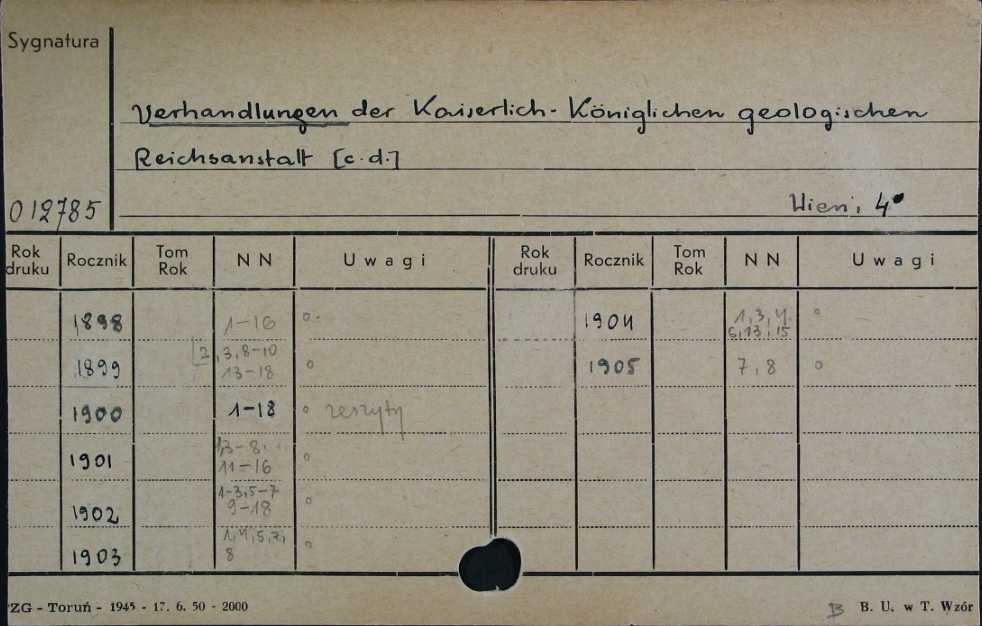 Sygnatura
Verhandlungen der Kaiserlich-Königlichen geologischen
Reichsanstalt [c.d.]
012785
Wien, 4°
Rok druku Rocznik Tom Rok NN Uwagi Rok druku Rocznik Tom Rok NN Uwagi
1898 1-16 1904 1,3,4. 6,13,15
1899 2,3,8-10 13-18 1905 7,8
1900 1-18 zeszyty
1901 1,3-8, 11-16
1902 1-3,5-7 9-18
1903 1,4,5,7, 8
ZG - Toruń - 1945 - 17. 6. 50 - 2000 B B. U. w T. Wzór